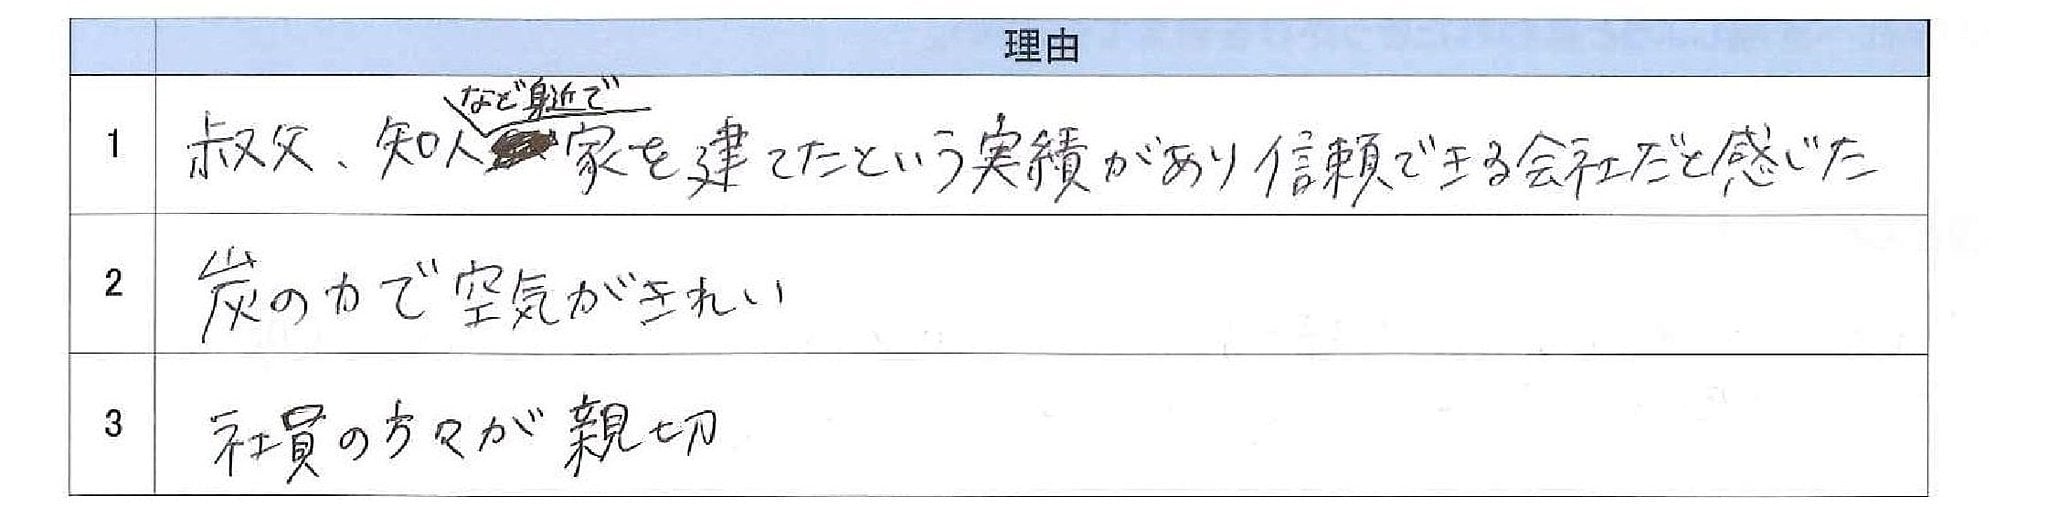 理由
1 叔父、知人など身近で家を建てたという実績があり信頼できる会社だと感じた
2 炭の力で空気がきれい
3 社員の方々が親切